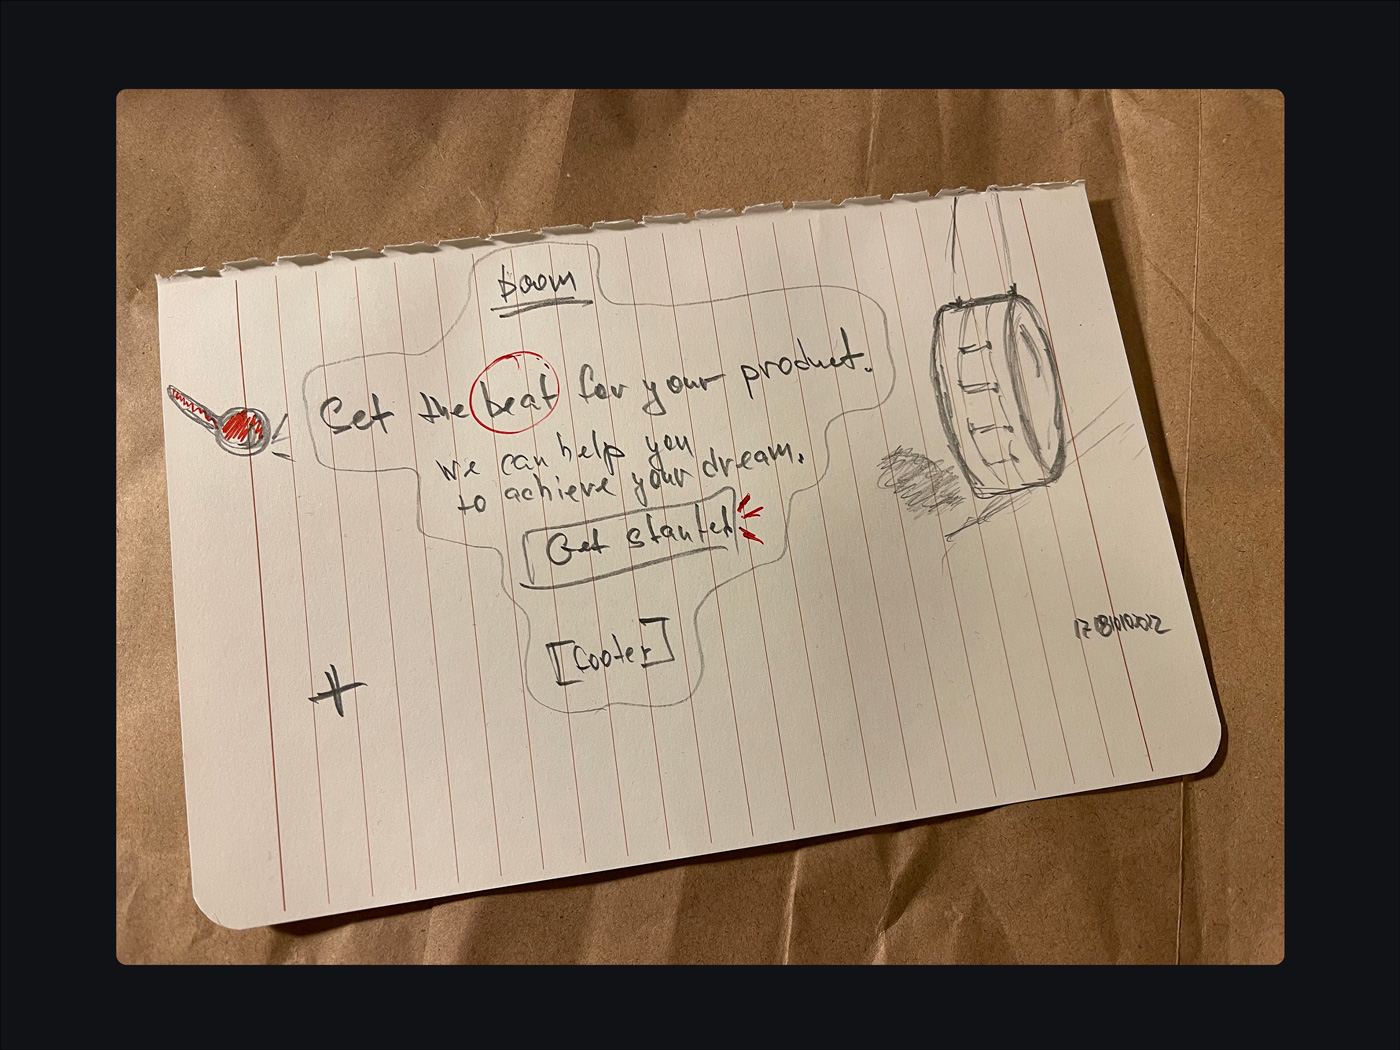 boom
Set the beat for your product.
we can help you
to achieve your dream.
Get started
[footer]